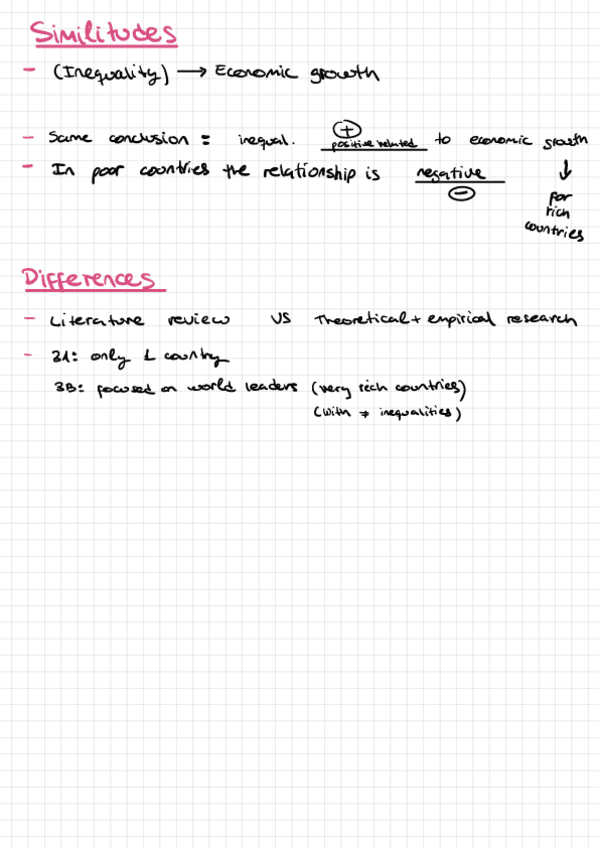 Similitudes
- (Inequality) → Economic growth
- Same conclusion = inequal. positive related to economic growth
+
- In poor countries the relationship is negative
-
↓
for
rich
countries
Differences
- Literature review VS Theoretical + empirical research
- 3A: only 1 country
3B: focused on world leaders (very rich countries)
(with ≠ inequalities)